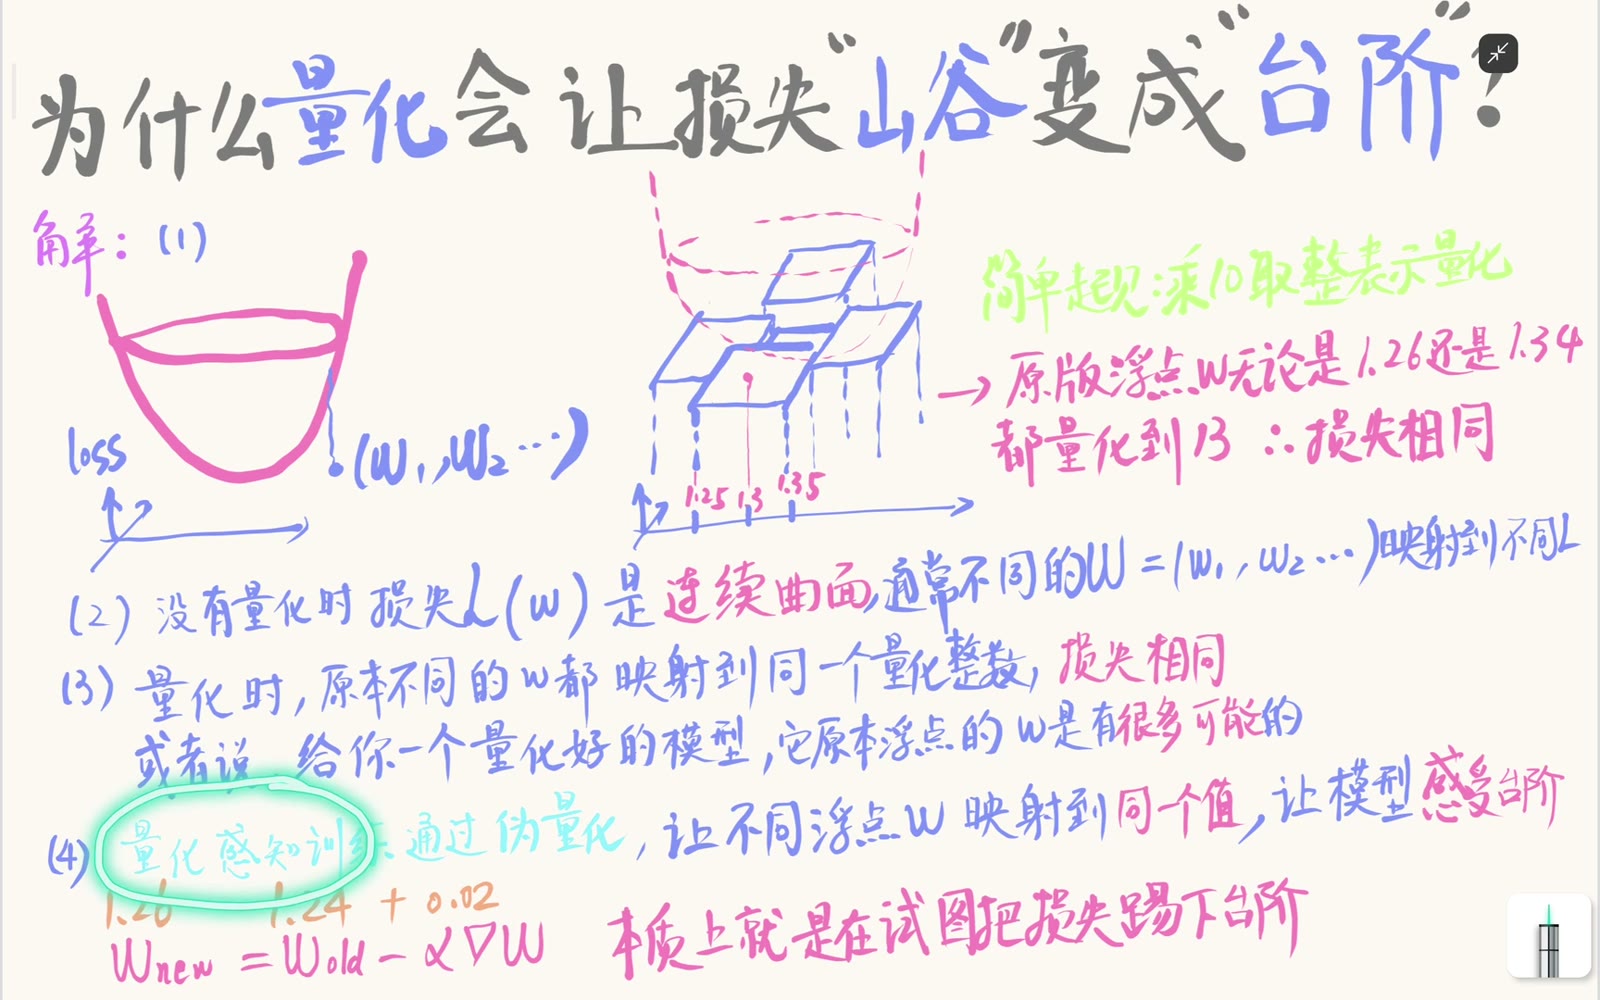 为什么量化会让损失“山谷”变成“台阶”?
解：(1)
loss
(W₁, W₂ …)
1.25 1.3 1.35
简单起见：乘10取整表示量化
→ 原版浮点W无论是1.26还是1.34
都量化到13 ∴损失相同
(2) 没有量化时损失L(w)是连续曲面,通常不同的W=(w₁, w₂ …)映射到不同L
(3) 量化时,原本不同的w都映射到同一个量化整数,损失相同
或者说 给你一个量化好的模型,它原本浮点的w是有很多可能的
(4) 量化感知训练 通过伪量化,让不同浮点W映射到同一个值,让模型感受台阶
1.26 1.24 + 0.02
Wnew = Wold - α∇W 本质上就是在试图把损失踢下台阶